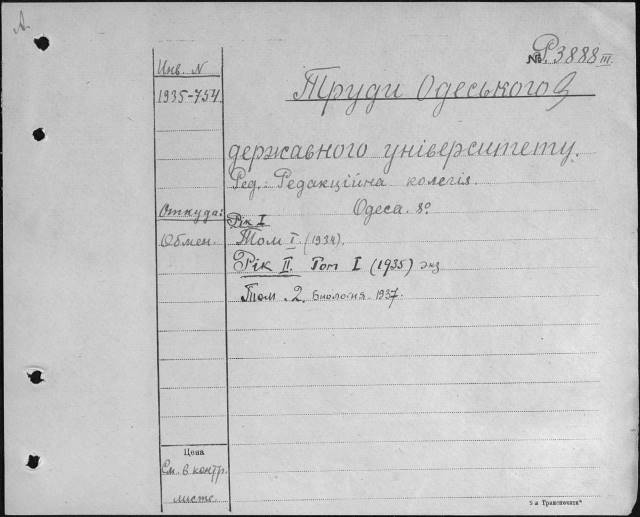 А.
№ Р.3888 III.
Инв. N
1935-754
Труди Одеського
державного університету.
Ред.: Редакційна колегія.
Откуда:
Одеса. 8º
Рік I
Обмен.
Том I (1934).
Рік II. Том I (1935) экз
Том .2. Биология. 1937.
Цена
См. в контр.
листе.
5 а Транспечати"